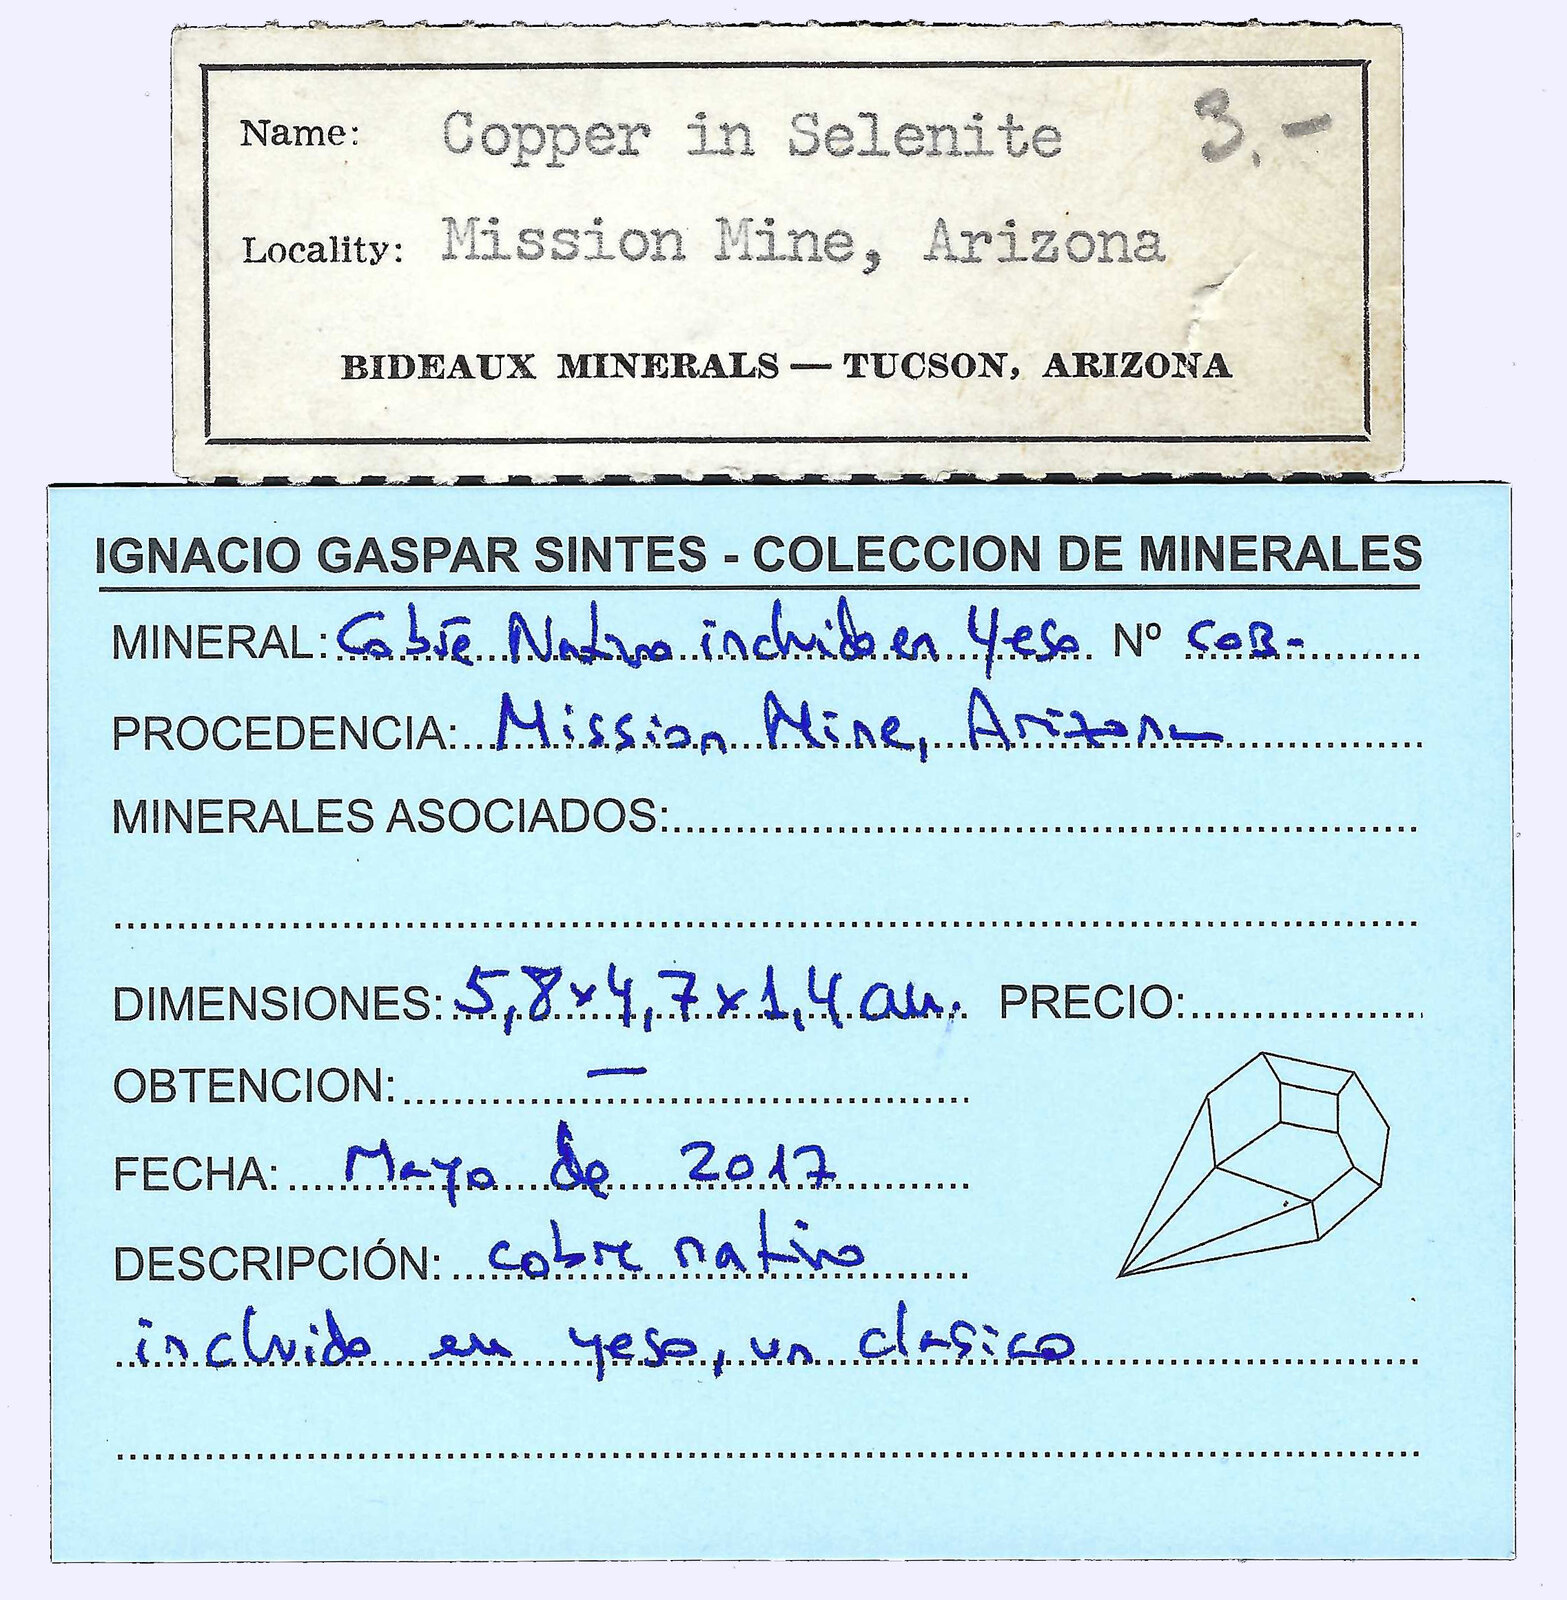 Name: Copper in Selenite 3.-
Locality: Mission Mine, Arizona
BIDEAUX MINERALS — TUCSON, ARIZONA
IGNACIO GASPAR SINTES - COLECCION DE MINERALES
MINERAL: Cobre Nativo incluido en Yeso Nº COB-
PROCEDENCIA: Mission Mine, Arizona
MINERALES ASOCIADOS:
DIMENSIONES: 5,8x4,7x1,4 cm. PRECIO:
OBTENCION: —
FECHA: Mayo de 2017
DESCRIPCIÓN: cobre nativo
incluido en yeso, un clasico